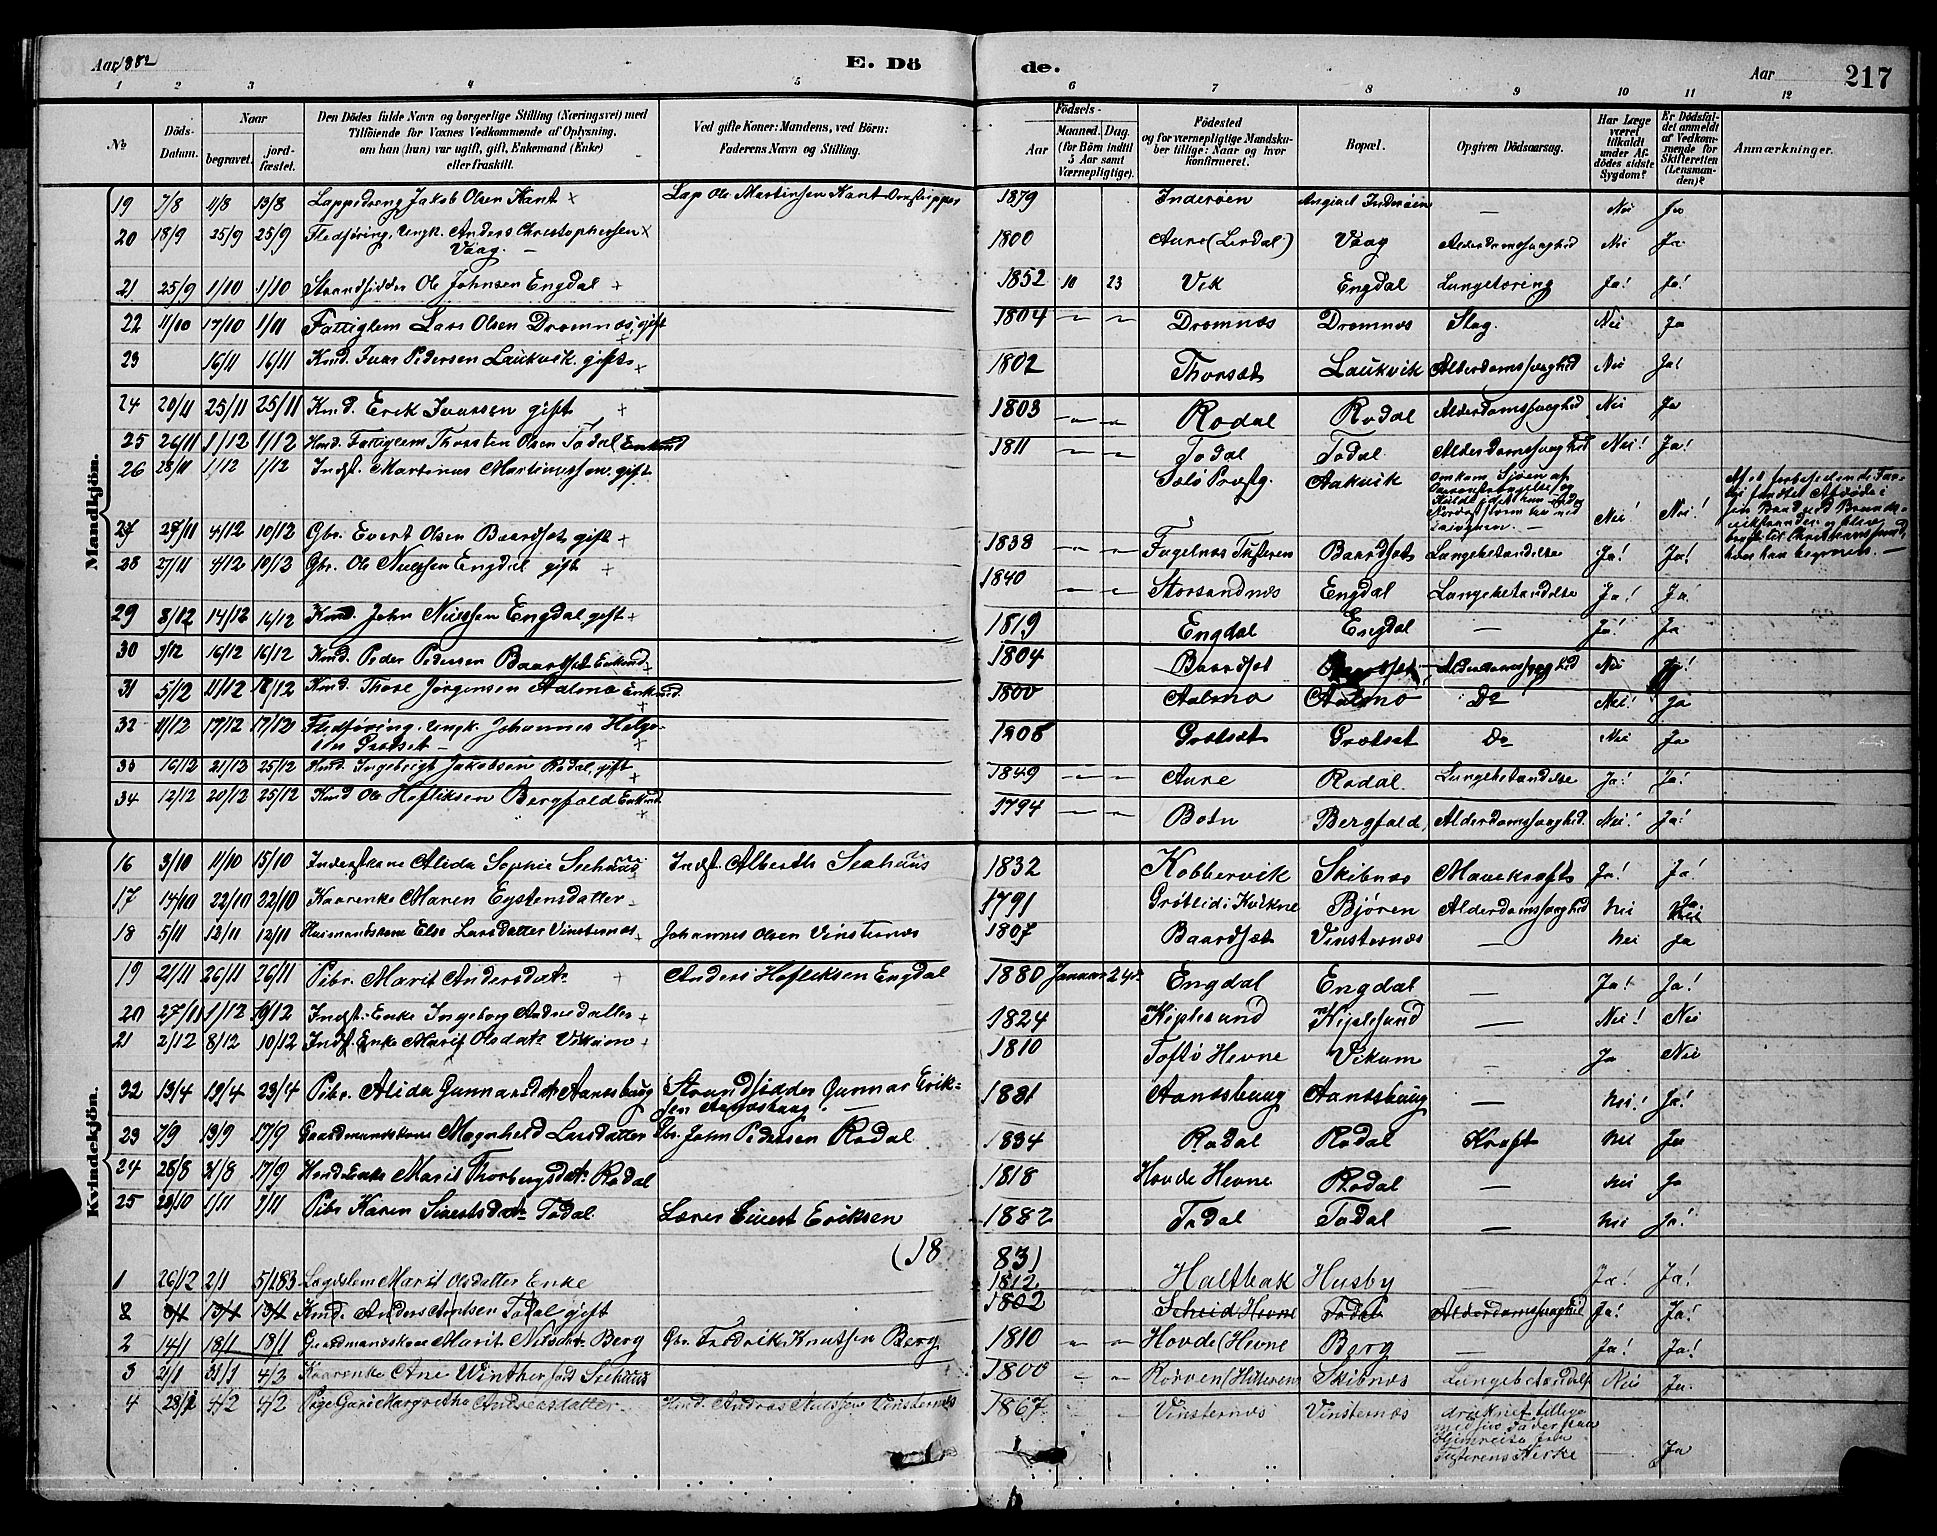 Aar 1882 E. Döde. Aar 217
1 2 3 4 5 6 7 8 9 10 11 12
№ Döds-Datum. Naar begravet. jordfæstet. Den Dödes fulde Navn og borgerlige Stilling (Næringsvei) med Tilföiende for Voxnes Vedkommende af Oplysning, om han (hun) var ugift, gift, Enkemand (Enke) eller fraskilt. Ved gifte Koner: Mandens, ved Börn: Faderens Navn og Stilling. Födsels- Aar Maaned. Dag. (for Börn indtil 5 Aar samt Værnepligtige). Födested og for værnepligtige Mandskaber tillige: Naar og hvor konfirmeret. Bopæl. Opgiven Dödsaarsag. Har Læge været tilkaldt under Afdödes sidste Sygdom? Er Dödsfaldet anmeldt af Vedkommende for Skifteretten (Lensmanden)? Anmærkninger.
Mandkjön.
19 7/8 11/8 13/8 Lappedreng Jakob Olsen Kant Lap Ole Martinsen Kant 1879 Inderöen Inderöen — Nei Ja
20 18/9 25/9 25/9 Fledföring, Ungk. Anders Christophersen Vaag. — 1800 Aure (Lerdal) Vaag Alderdomssvaghed Nei Ja
21 25/9 1/10 1/10 Strandsidder Ole Johnsen Engdal 1852 10 23 Vik Engdal Lungetæring Ja! Ja!
22 11/10 17/10 1/11 Fattiglem Lars Olsen Dromnæs, gift 1804 Dromnæs Dromnæs Slag. Nei Ja
23 16/11 16/11 Kmd. Ivar Pedersen Laukvik. gift 1802 Thorsæt Laukvik Alderdomssvaghed Nei Ja!
24 20/11 25/11 25/11 Kmd. Erik Ivarsen gift 1803 Rodal Rodal Alderdomssvaghed Nei Ja
25 26/11 1/12 1/12 Hmd. Fattiglem Thorsten Olsen Todal Enkmd 1811 Todal Todal Alderdomssvaghed Nei! Ja!
26 28/11 1/12 1/12 Indst. Martinus Martinussen, gift Præstg. Aakvik Omkom Sjöen af Nei! Nei!
27 28/11 4/12 10/12 Gbr. Evert Olsen Baardset gift 1838 Fugelnæs Tusteren Baardset Lungebetændelse Ja! Ja!
28 27/11 4/12 10/12 Gbr. Ole Nielsen Engdal gift 1840 Storsandnæs Engdal Lungebetændelse Ja! Ja!
29 8/12 14/12 14/12 Kmd. John Nielsen Engdal, gift 1819 Engdal Engdal — Ja! Ja
30 3/12 16/12 16/12 Kmd. Peder Pedersen Baardset Enkmd. 1804 Baardset Baardset Alderdomssvaghed Nei Ja!
31 5/12 11/12 12/12 Kmd. Thore Jörgensen Aalmo Enkmd. 1800 Aalmo Aalmo Do Nei! Ja
32 11/12 17/12 17/12 Fledföring, Ungk. Johannes Helgesen Grætset — 1808 Grætset Grætset Do Nei Ja
33 16/12 21/12 25/12 Hmd. Ingebrigt Jakobsen Rodal, gift 1849 Aure Rodal. Lungebetændelse Ja! Ja!
34 12/12 20/12 25/12 Kmd Ole Hofliksen Bergfald Enkmd. 1794 Botn Bergfald Alderdomssvaghed. Nei! Ja!
Kvindekjön.
16 3/10 11/10 15/10 Inderstkone Alida Sophie Seehuus Indst. Alberth Seehuus 1832 Kobbervik Skibnæs Mavekræft Ja! Ja!
17 14/10 22/10 22/10 Kaarenke Maren Eystensdatter 1791 Grötlid i Kvikne Bjøren Alderdomssvaghed Nei Ja
18 5/11 12/11 12/11 Husmandskone Else Larsdatter Vinsternæs Johannes Olsen Vinsternæs 1807 Baardset Vinsternæs — Nei Ja
19 21/11 26/11 26/11 Pibr. Marit Andersdatr Anders Hofliksen Engdal 1880 Januar 24de Engdal Engdal — Ja! Ja!
20 27/11 1/12 10/12 Indst. Enke Ingeborg Andersdatter 1824 Kiplesund Kiplesund — Nei! Nei
21 2/12 8/12 10/12 Indst. Enke Marit Olsdatr Vikum 1810 Toftö Hevne Vikum — Ja Nei
22 13/4 19/4 23/4 Pibr. Alida Gunnarsdatr Aaneshaug Strandsidder Gunnar Eriksen Aanæshaug. — 1881 Aanæshaug Aanæshaug — Nei! Ja!
23 7/9 13/9 17/9 Gaardmandskone Magnhild Larsdatter Gbr. John Pedersen Rodal 1834 Rodal Rodal Kræft Nei Ja
24 28/8 31/8 17/9 Hmd. Enke Marit Thorbergsdatr Rodal 1818 Hovde Hevne Rodal — Nei Ja
25 28/10 1/11 1/11 Pibr Karen Sivertsdatr Todal. Lærer Sivert Eriksen 1882 Todal Todal — Nei Ja!
(1883)
1 26/12 2/1 5/1 83 Lægdslem Marit Olsdatter Enke 1812 Holtbak Husby — Ja! Ja!
2 8/1 13/1 13/1 Kmd. Anders Arntsen Todal, gift 1802 Scheid Hevne Todal Alderdomssvaghed Ja! Ja!
2 14/1 18/1 18/1 Gaardmandskone Marit Nilsdtr Berg Gbr. Fredrik Knutsen Berg 1810 Hovde (Hevne Berg — Ja! Ja!
3 21/1 31/1 4/3 Kaarenke Ane Winther fød Seehuus 1800 Rosven (Hitteren Skibnæs Lungebetændelse Nei Ja.
4 28/1 4/2 4/2 Pige Guri Margretha Andreasdatter Hmd. Andreas Vinsternæs 1867 Vinsternæs Vinsternæs druknet tillige med sin Fader paa Hjemreise fra Tusterens Kirke — Ja